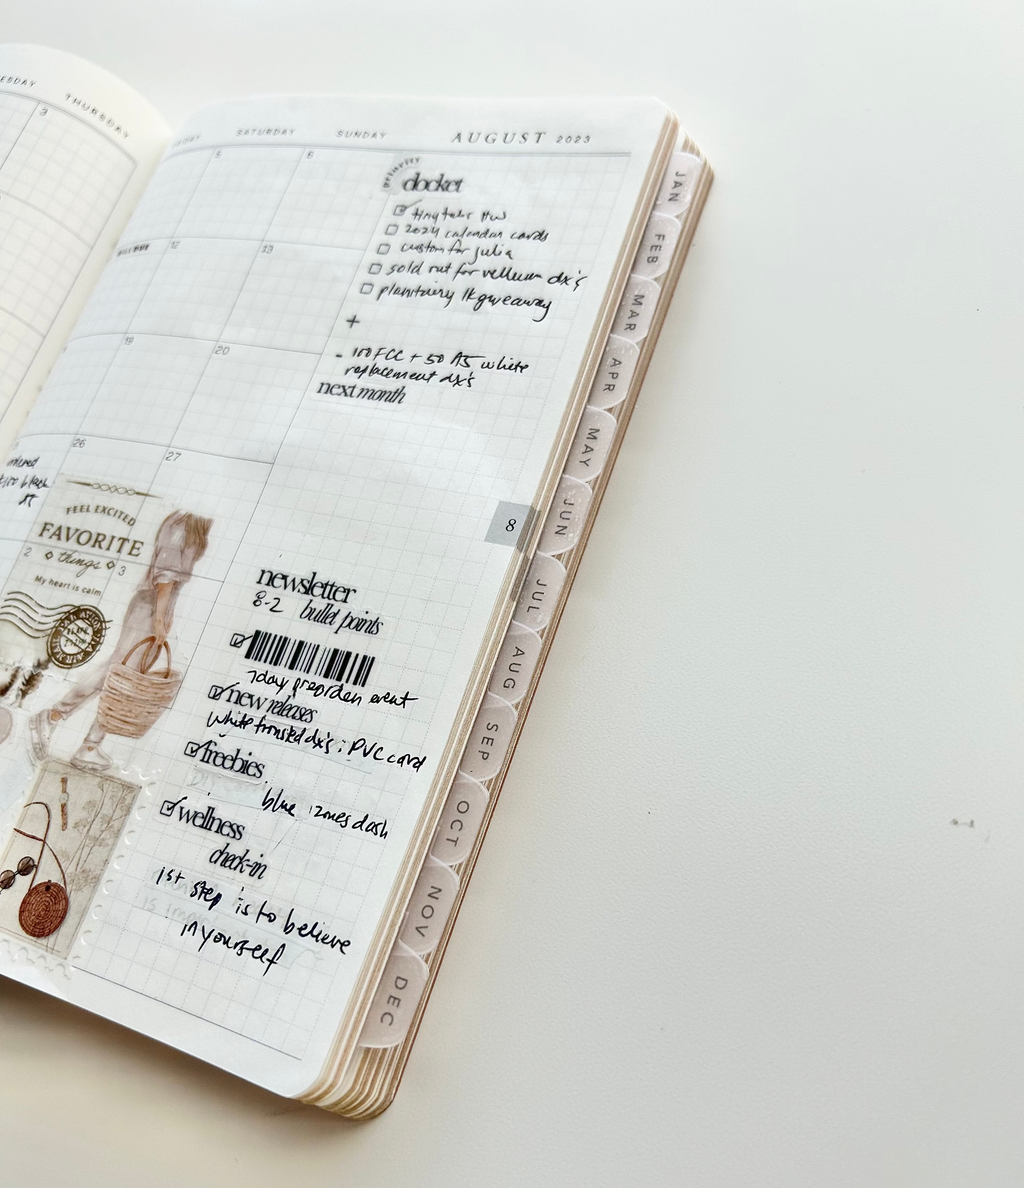 THURSDAY
3
SATURDAY
SUNDAY
AUGUST 2023
5
6
12
13
19
20
26
27
2
3
priority
docket
tiny tabs HW
2024 calendar cards
custom for julia
sold out for vellum dx's
giveaway
+
- 100 FCC + 50 A5 white
replacement dx's
next month
ordered
black
FEEL EXCITED
FAVORITE
things
My heart is calm
newsletter
8-2 bullet points
7day preorder event
new releases
white frosted dx's : PVC card
freebies
blue zones dash
wellness
check-in
1st step is to believe
in yourself
8
JAN
FEB
MAR
APR
MAY
JUN
JUL
AUG
SEP
OCT
NOV
DEC